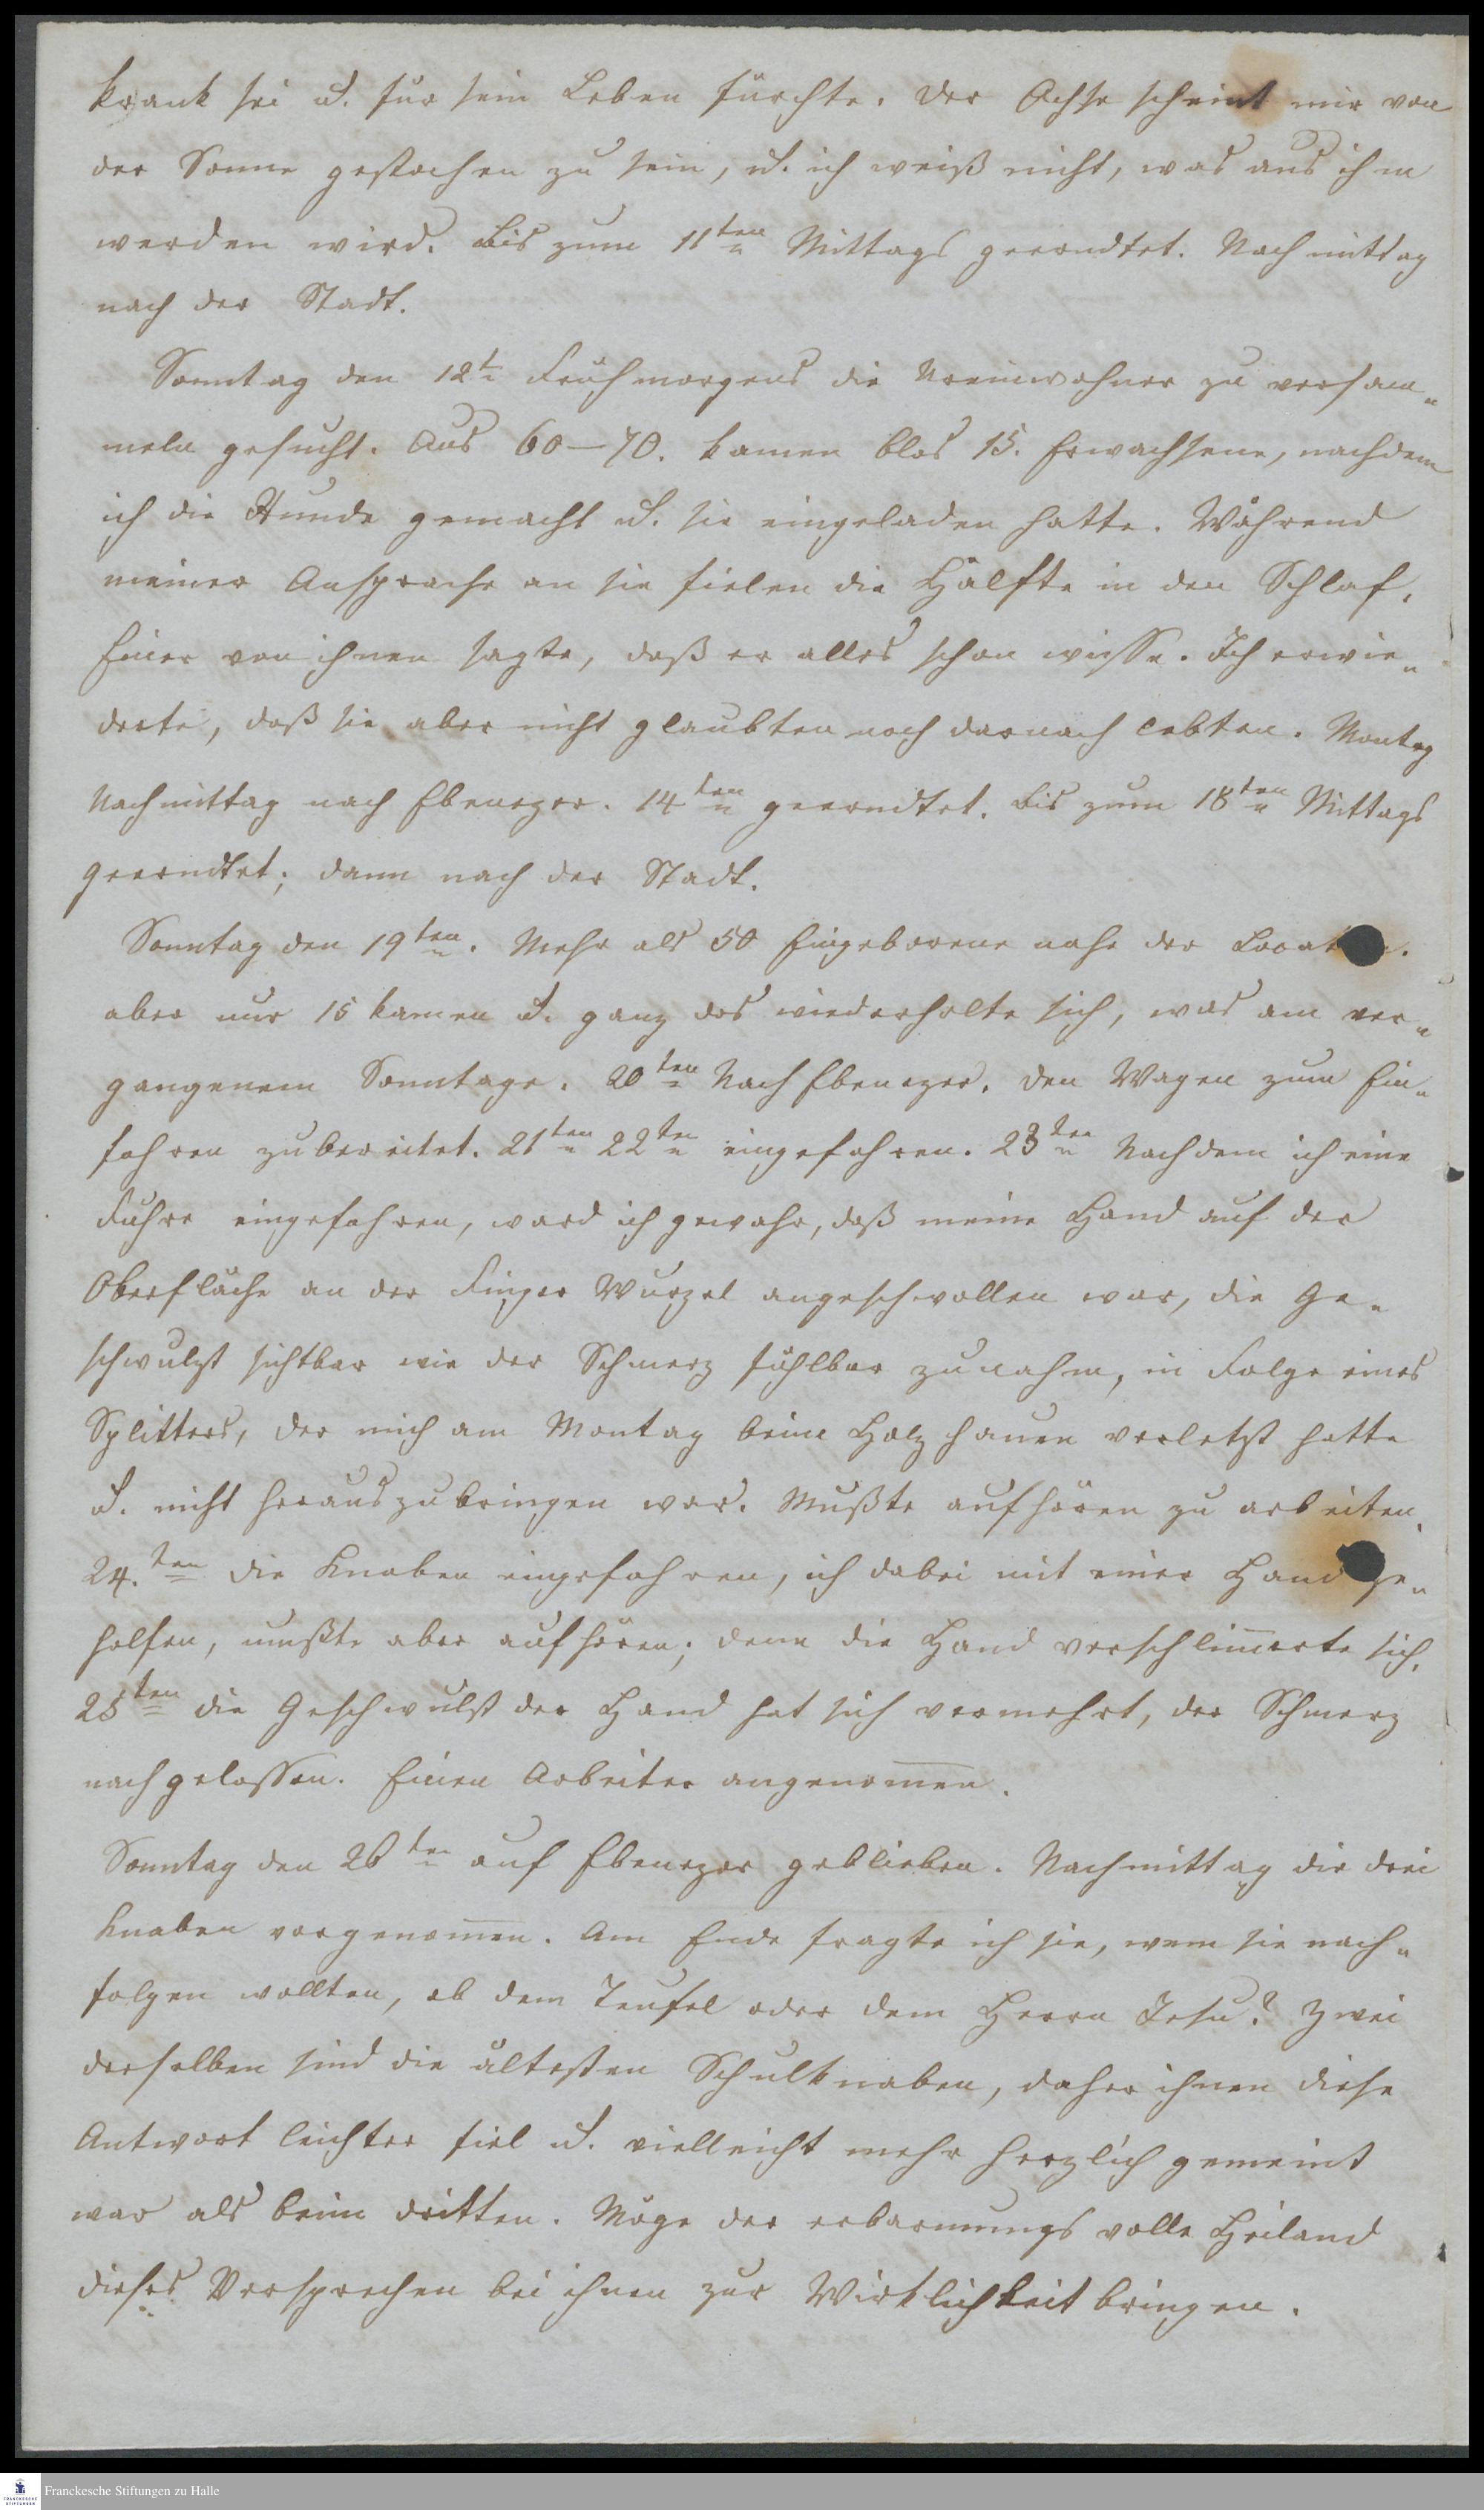 krank sei u. für sein Leben fürchte. Der Ochse scheint mir von
der Sonne gestochen zu sein, u. ich weiß nicht, was aus ihm
werden wird. Bis zum 11ten Mittags geerndtet. Nachmittag
nach der Stadt.
Sonntag den 12t. Frühmorgens die Ureinwohner zu versam-
meln gesucht. Aus 60–70. kamen blos 15. Erwachsene, nachdem
ich die Runde gemacht u. sie eingeladen hatte. Während
meiner Ansprache an sie fielen die Hälfte in den Schlaf,
Einer von ihnen sagte, daß er alles schon wisse. Ich erwie-
derte, daß sie aber nicht glaubten noch darnach lebten. Montag
Nachmittag nach Ebenezer. 14ten geerndtet. Bis zum 18ten Mittags
geerndtet; dann nach der Stadt.
Sonntag den 19ten. Mehr als 50 Eingeborene nahe der
aber nur 15 kamen u. ganz das wiederholte sich, was am ver-
gangenem Sonntage. 20ten Nach Ebenezer. Den Wagen zum Ein-
fahren zubereitet. 21ten 22ten eingefahren. 23ten Nachdem ich eine
Fuhre eingefahren, ward ich gewahr, daß meine Hand auf der
Oberfläche an der Finger Wurzel angeschwollen war, die Ge-
schwulst sichtbar wie der Schmerz fühlbar zunahm, in Folge eines
Splitters, der mich am Montag beim Holz hauen verletzt hatte
u. nicht herauszubringen war. Mußte aufhören zu arbeiten.
24.ten die Knaben eingefahren, ich dabei mit einer Hand ge-
holfen, mußte aber aufhören; denn die Hand verschlimerte sich.
25ten die Geschwulst der Hand hat sich vermehrt, der Schmerz
nachgelassen. Einen Arbeiter angenomen.
Sonntag den 26ten auf Ebenezer geblieben. Nachmittag die drei
Knaben vorgenomen. Am Ende fragte ich sie, wem sie nach-
folgen wollten, ob dem Teufel oder dem Herrn Jesu? Zwei
derselben sind die ältesten Schulknaben, daher ihnen diese
Antwort leichter fiel u. vielleicht mehr herzlich gemeint
war als beim dritten. Möge der erbarmungs volle Heiland
dieses Versprechen bei ihnen zur Wirklichkeit bringen.
Franckesche Stiftungen zu Halle